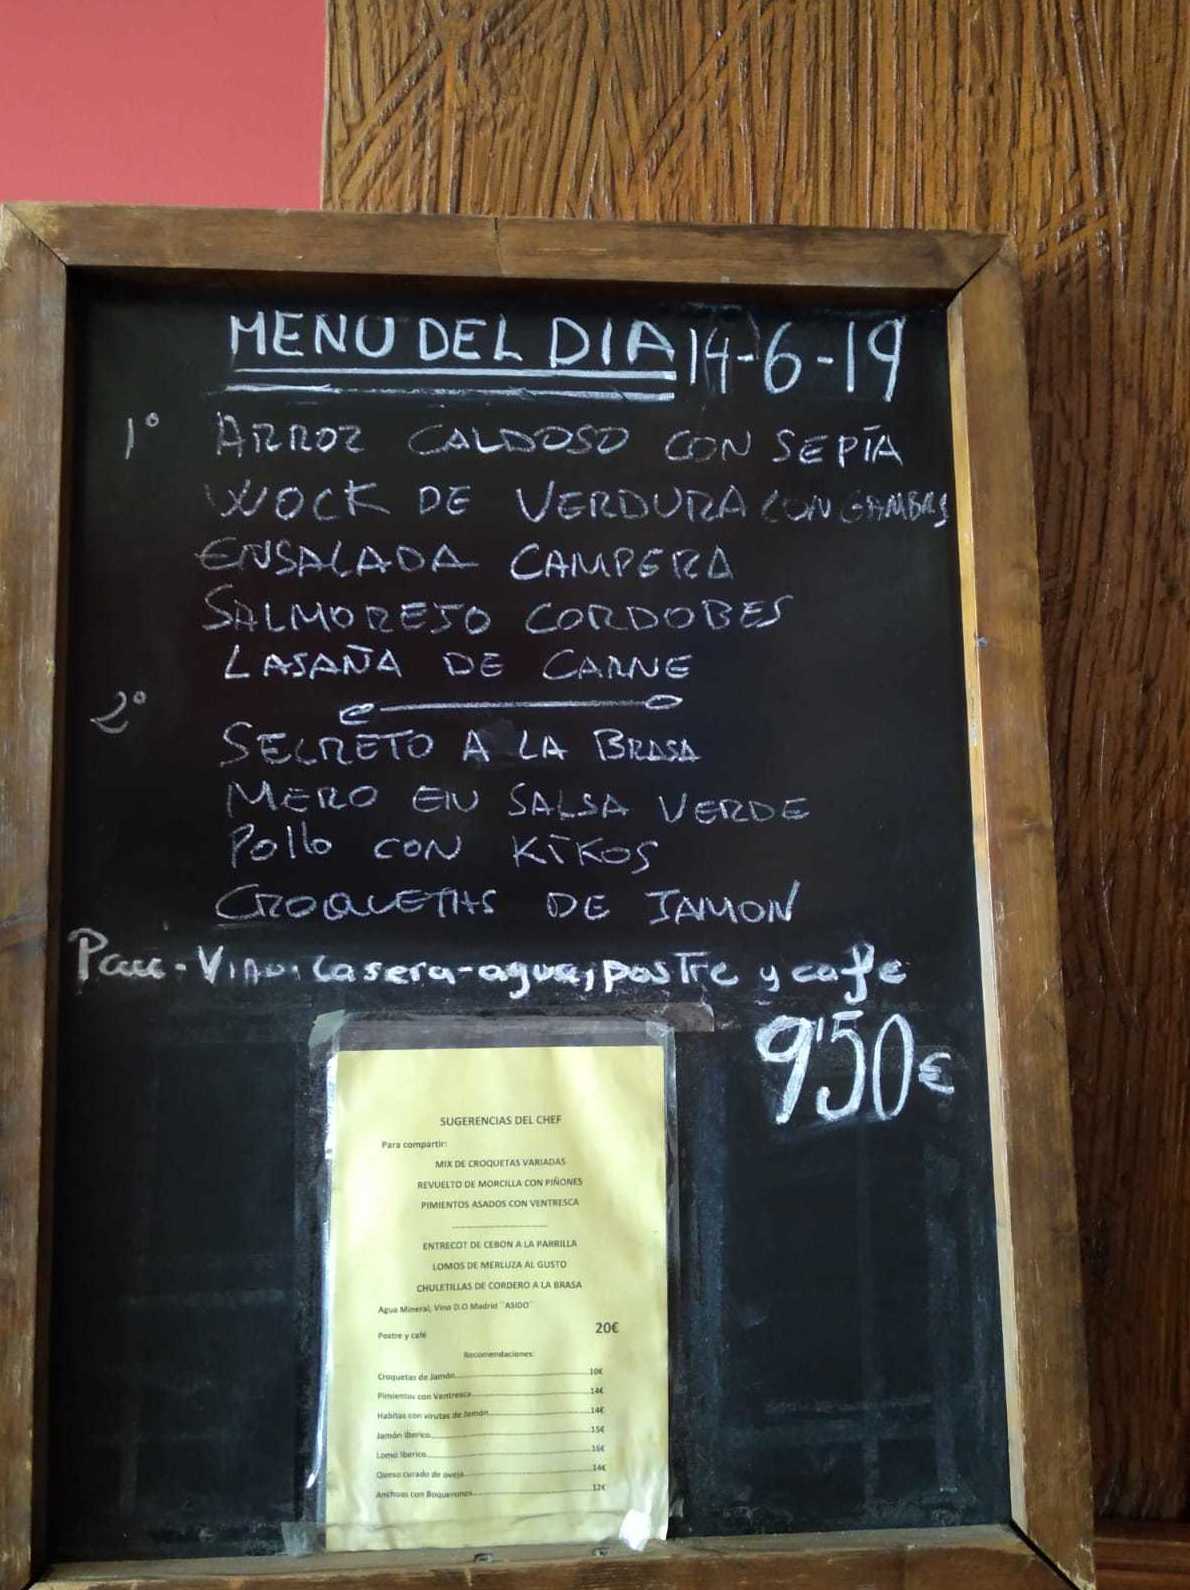 MENU DEL DIA 14-6-19
1° ARROZ CALDOSO CON SEPIA
WOCK DE VERDURA CON GAMBAS
ENSALADA CAMPERA
SALMOREJO CORDOBES
LASAÑA DE CARNE
2°
SECRETO A LA BRASA
MERO EN SALSA VERDE
Pollo CON KIKOS
CROQUETAS DE JAMON
Pan - Vino. Casera - agua, postre y cafe
9'50€
SUGERENCIAS DEL CHEF
Para compartir:
MIX DE CROQUETAS VARIADAS
REVUELTO DE MORCILLA CON PIÑONES
PIMIENTOS ASADOS CON VENTRESCA
ENTRECOT DE CEBON A LA PARRILLA
LOMOS DE MERLUZA AL GUSTO
CHULETILLAS DE CORDERO A LA BRASA
Agua Mineral, Vino D.O Madrid ¨ASIDO¨
Postre y café 20€
Recomendaciones:
Croquetas de Jamón 10€
Pimientos con Ventresca 14€
Habitas con virutas de Jamón 14€
Jamón Iberico 15€
Lomo Iberico 16€
Queso curado de oveja 14€
Anchoas con Boquerones 12€